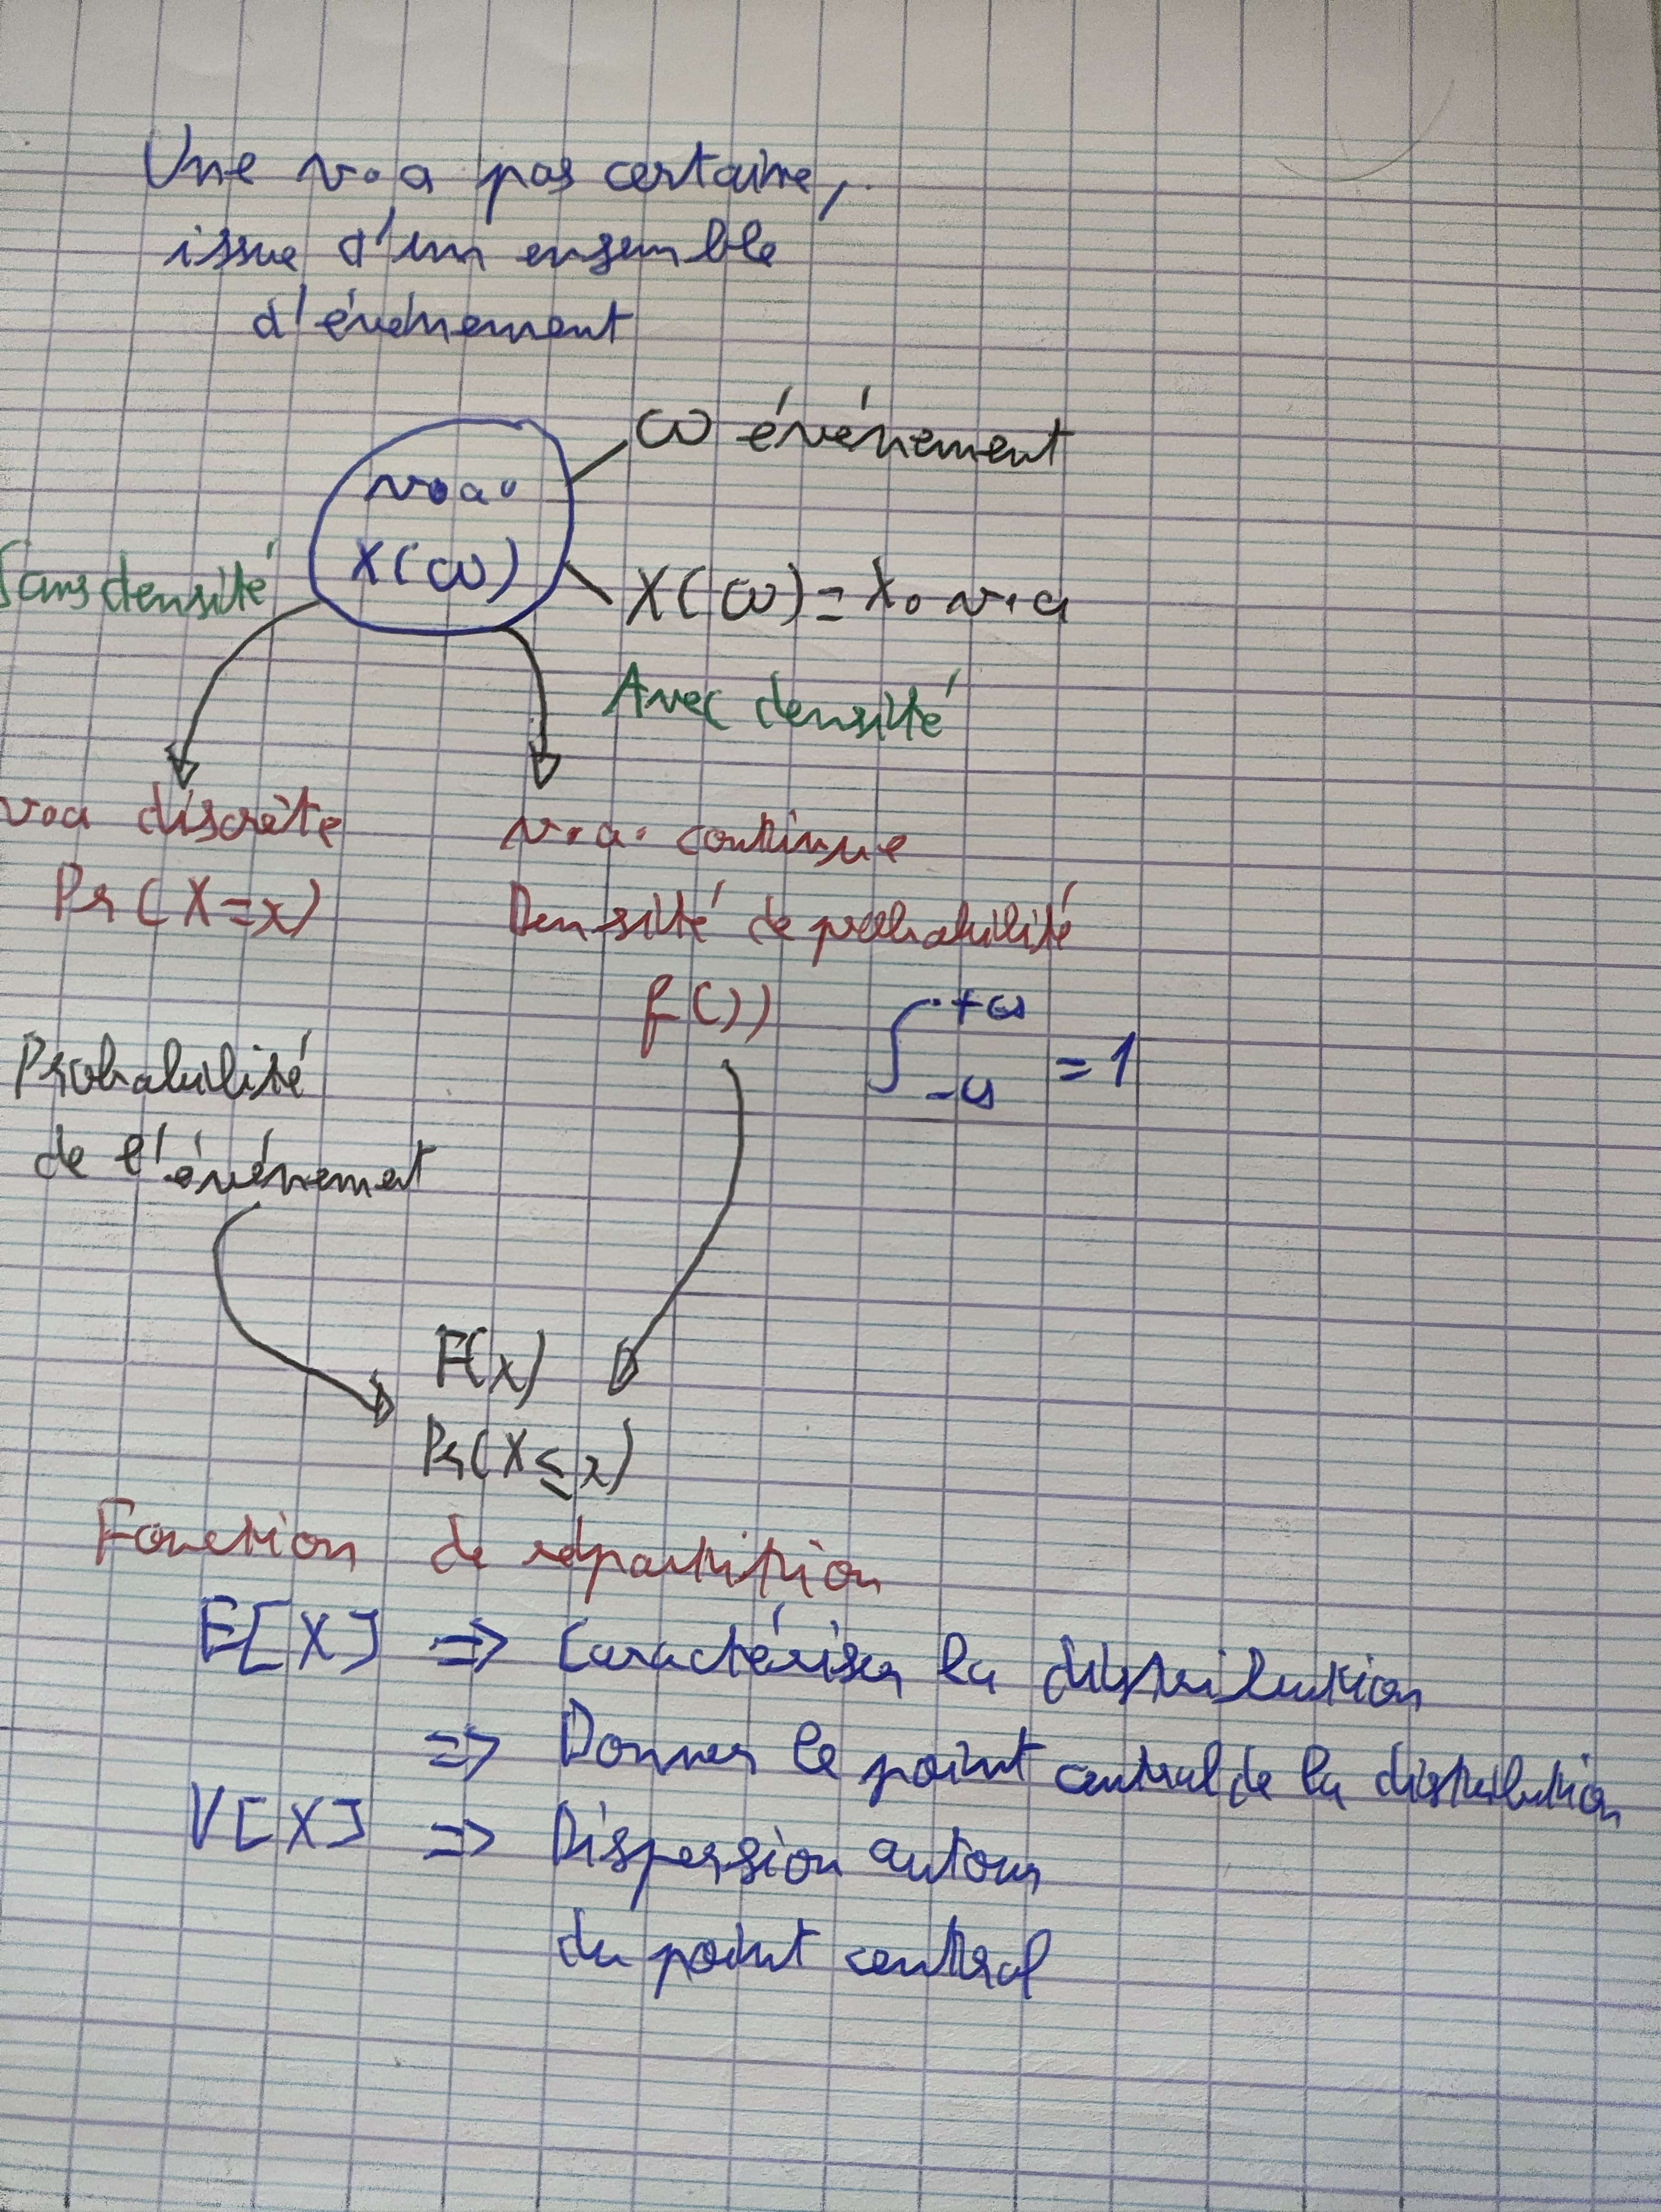 Une v.a pas certaine,
issue d'un ensemble
d'événement
ω événement
v.a.
X(ω)
Sans densité
X(ω) = x. v.a
Avec densité
v.a discrète
v.a. continue
Pr(X=x)
Densité de probabilité
f(.)
∫ +∞ -∞ = 1
Probabilité
de l'événement
F(x)
Pr(X ≤ x)
Fonction de répartition
E[X] => Caractériser la distribution
=> Donner le point central de la distribution
V[X] => Dispersion autour
du point central